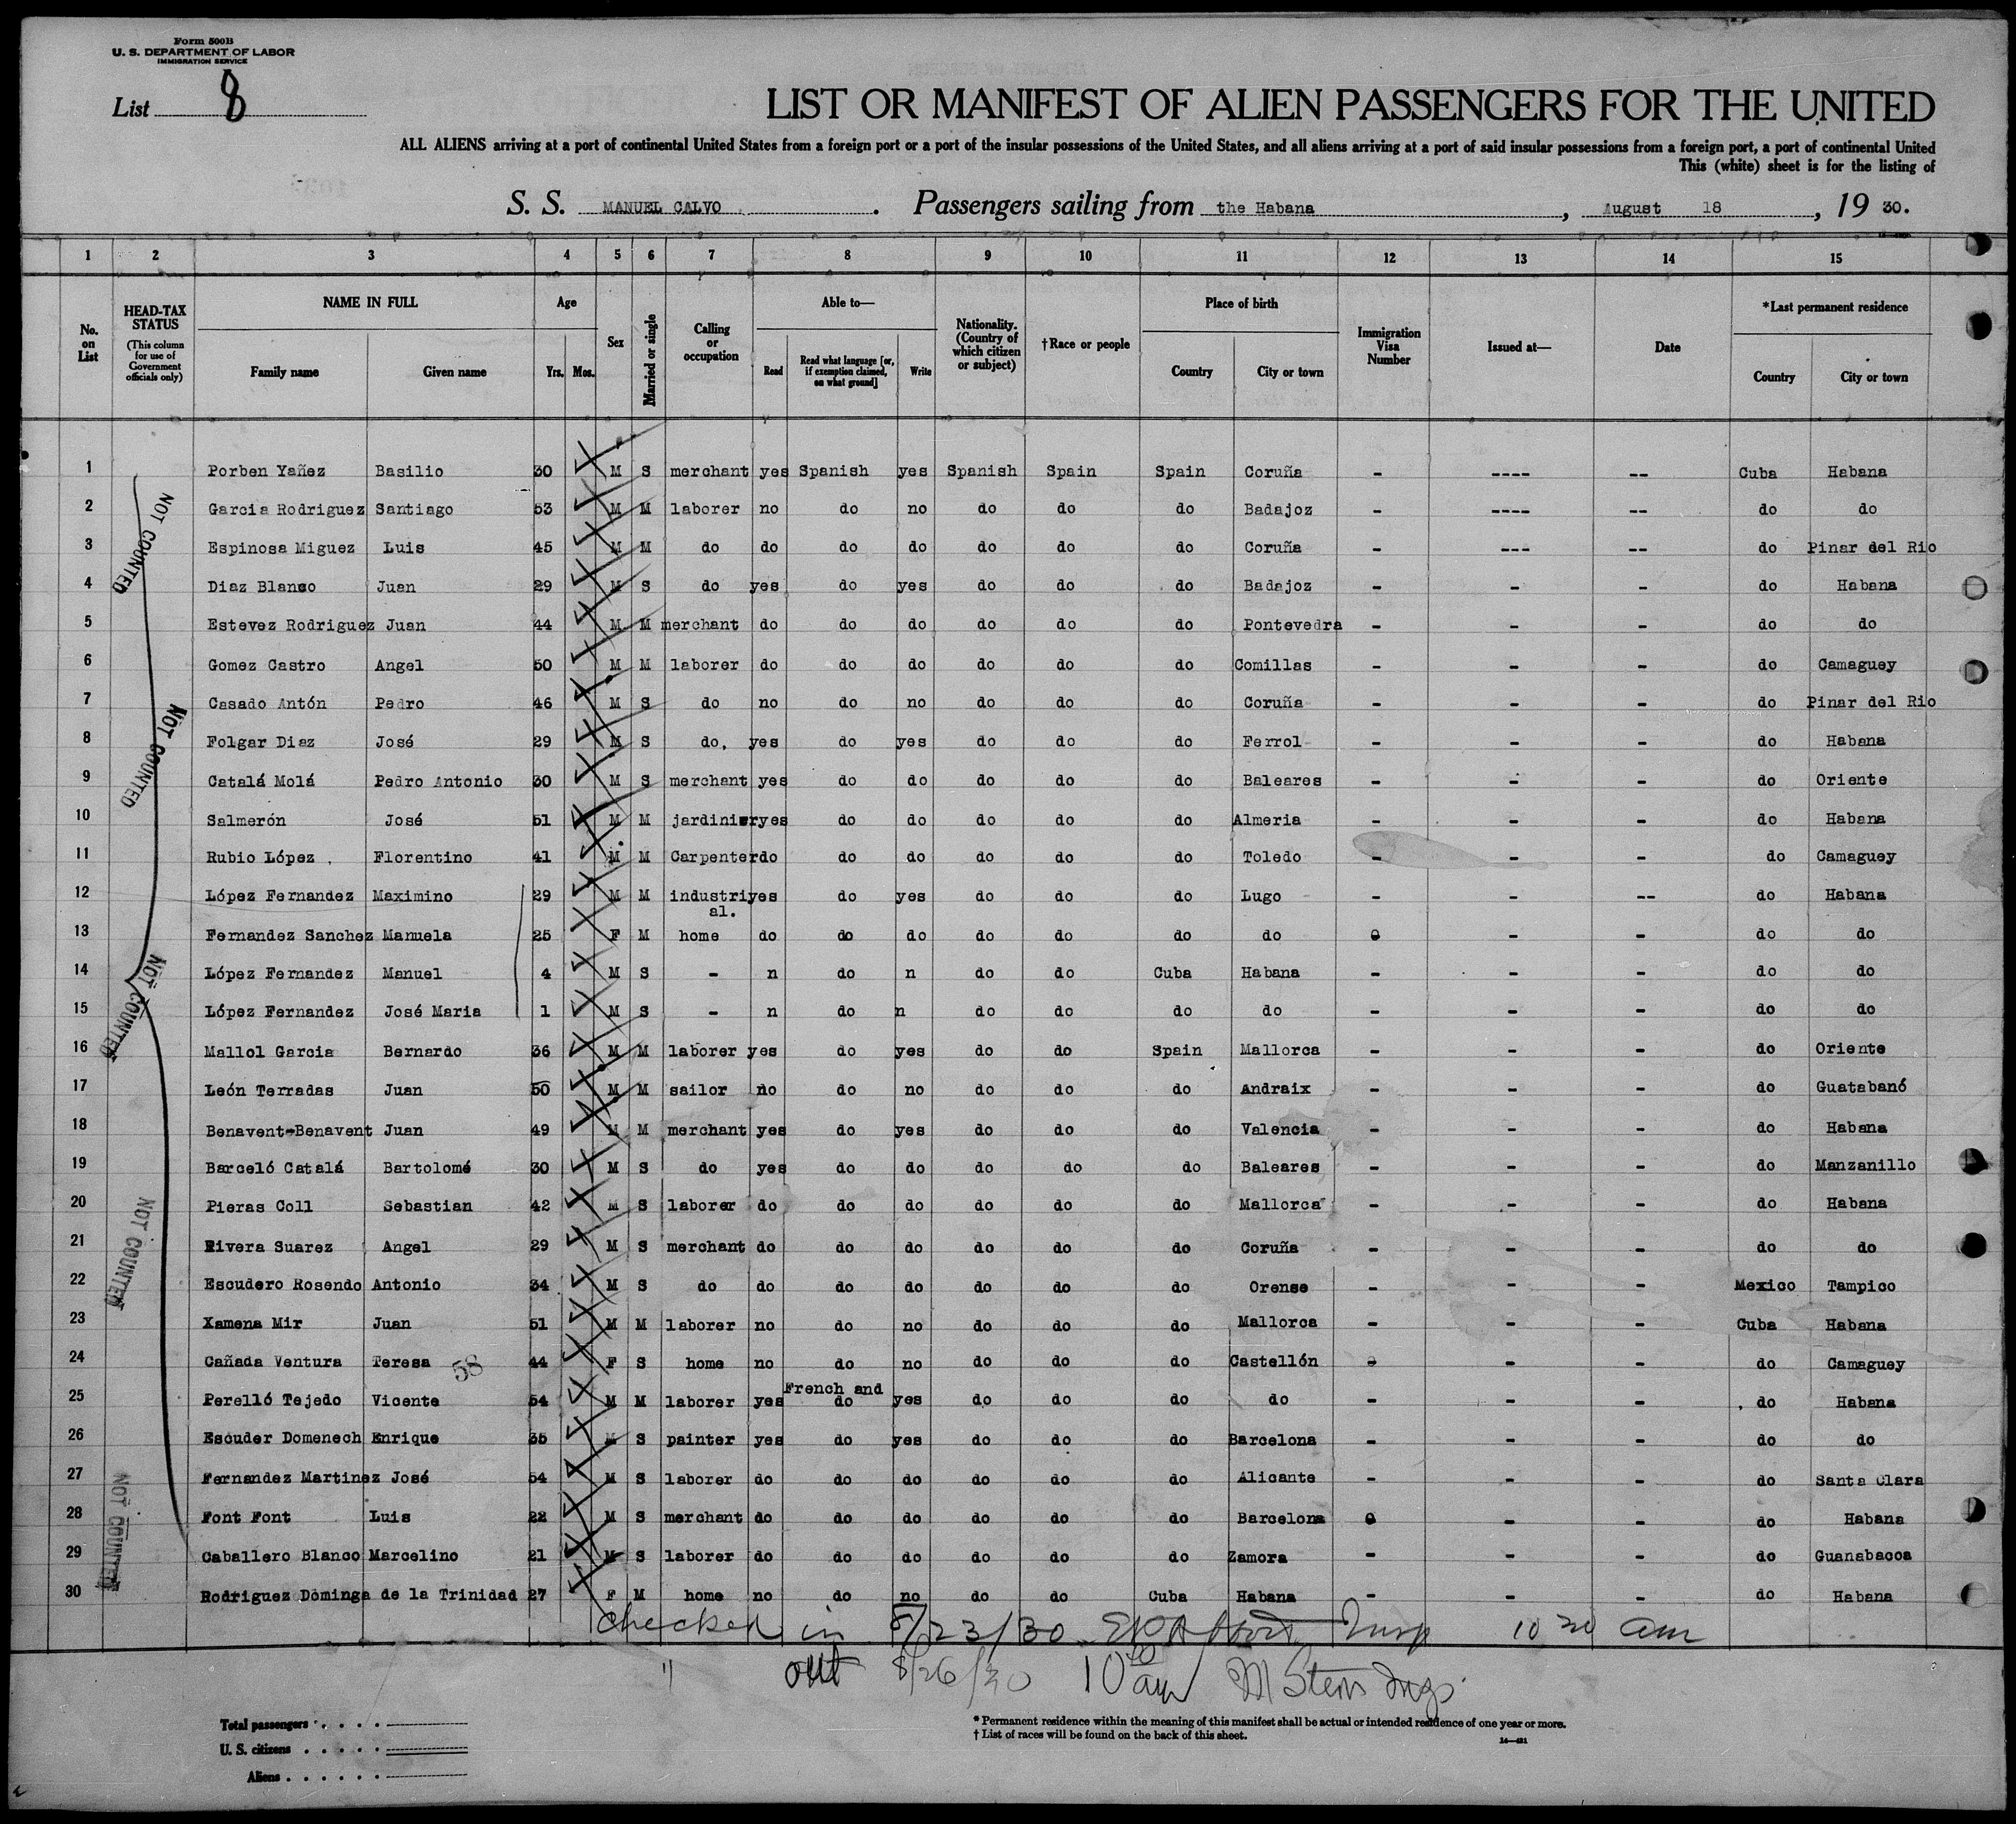 Form 500B
U. S. DEPARTMENT OF LABOR
IMMIGRATION SERVICE
List 8
LIST OR MANIFEST OF ALIEN PASSENGERS FOR THE UNITED
ALL ALIENS arriving at a port of continental United States from a foreign port or a port of the insular possessions of the United States, and all aliens arriving at a port of said insular possessions from a foreign port, a port of continental United
This (white) sheet is for the listing of
S. S. MANUEL CALVO. Passengers sailing from the Habana, August 18, 19 30.
1 2 3 4 5 6 7 8 9 10 11 12 13 14 15
No. on List
HEAD-TAX STATUS (This column for use of Government officials only)
NAME IN FULL Family name Given name
Age Yrs. Mos.
Sex
Married or single
Calling or occupation
Able to— Read Read what language [or, if exemption claimed, on what ground] Write
Nationality. (Country of which citizen or subject)
†Race or people
Place of birth Country City or town
Immigration Visa Number
Issued at—
Date
*Last permanent residence Country City or town
1 Porben Yañez Basilio 30 M S merchant yes Spanish yes Spanish Spain Spain Coruña - ---- -- Cuba Habana
2 Garcia Rodriguez Santiago 53 M M laborer no do no do do do Badajoz - ---- -- do do
3 Espinosa Miguez Luis 45 M M do do do do do do do Coruña - --- -- do Pinar del Rio
4 Diaz Blanco Juan 29 M S do yes do yes do do do Badajoz - - - do Habana
5 Estevez Rodriguez Juan 44 M M merchant do do do do do do Pontevedra - - - do do
6 Gomez Castro Angel 50 M M laborer do do do do do do Comillas - - - do Camaguey
7 Casado Antón Pedro 46 M S do no do no do do do Coruña - - - do Pinar del Rio
8 Folgar Diaz José 29 M S do, yes do yes do do do Ferrol - - - do Habana
9 Catalá Molá Pedro Antonio 30 M S merchant yes do do do do do Baleares - - - do Oriente
10 Salmerón José 51 M M jardinier yes do do do do do Almeria - - - do Habana
11 Rubio López Florentino 41 M M Carpenter do do do do do do Toledo - - - do Camaguey
12 López Fernandez Maximino 29 M M industrial. yes do yes do do do Lugo - - -- do Habana
13 Fernandez Sanchez Manuela 25 F M home do do do do do do do - - do do
14 López Fernandez Manuel 4 M S - n do n do do Cuba Habana - - - do do
15 López Fernandez José Maria 1 M S - n do n do do do do - - - do do
16 Mallol Garcia Bernardo 36 M M laborer yes do yes do do Spain Mallorca - - - do Oriente
17 León Terradas Juan 50 M M sailor no do no do do do Andraix - - - do Guatabanó
18 Benavent-Benavent Juan 49 M M merchant yes do yes do do do Valencia - - - do Habana
19 Barceló Catalá Bartolomé 30 M S do yes do do do do do Baleares - - - do Manzanillo
20 Pieras Coll Sebastian 42 M S laborer do do do do do do Mallorca - - - do Habana
21 Rivera Suarez Angel 29 M S merchant do do do do do do Coruña - - - do do
22 Escudero Rosendo Antonio 34 M S do do do do do do do Orense - - - Mexico Tampico
23 Xamena Mir Juan 51 M M laborer no do no do do do Mallorca - - - Cuba Habana
24 Cañada Ventura Teresa 58 44 F S home no do no do do do Castellón - - do Camaguey
25 Perelló Tejedo Vicente 54 M M laborer yes French and do yes do do do do - - - do Habana
26 Escuder Domenech Enrique 35 M S painter yes do yes do do do Barcelona - - - do do
27 Fernandez Martinez José 54 M S laborer do do do do do do Alicante - - - do Santa Clara
28 Font Font Luis 22 M S merchant do do do do do do Barcelona - - do Habana
29 Caballero Blanco Marcelino 21 M S laborer do do do do do do Zamora - - - do Guanabacoa
30 Rodriguez Dominga de la Trinidad 27 F M home no do no do do Cuba Habana - - - do Habana
NOT COUNTED
NOT COUNTED
NOT COUNTED
NOT COUNTED
NOT COUNTED
Checked in 8/23/30 Insp 10 30 am
" out 8/26/30 10 am M Stern Insp.
Total passengers
U. S. citizens
Aliens
* Permanent residence within the meaning of this manifest shall be actual or intended residence of one year or more.
† List of races will be found on the back of this sheet.
14—421